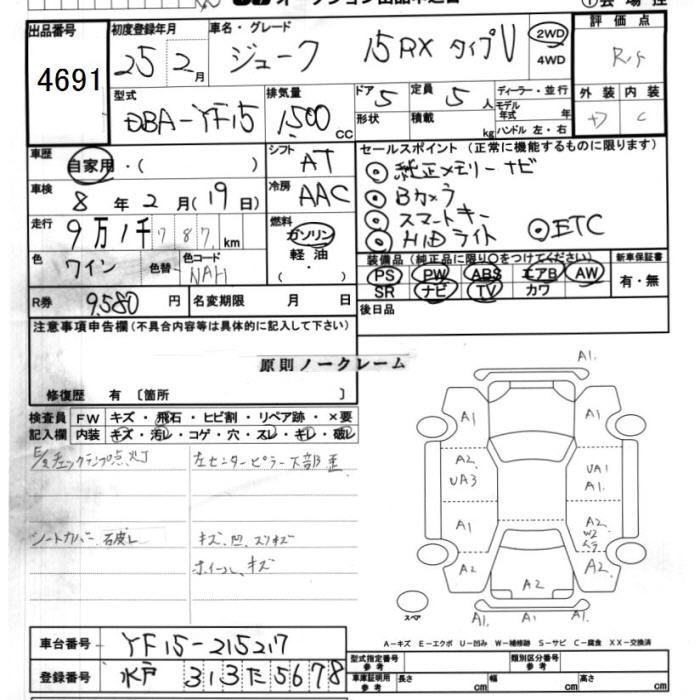 出品番号
4691
初度登録年月
25 2月
車名・グレード
ジューク 15RX タイプV
2WD
4WD
評価点
外装 内装
C
型式
DBA-YF15
排気量
1,500 CC
ドア 5
形状
定員 5 人
積載 kg
ディーラー・並行
モデル年式 年
ハンドル 左・右
車歴
自家用・( )
シフト
AT
車検
8年 2月(19日)
冷房
AAC
走行
9万1千787km
燃料
ガソリン
軽油
色
ワイン
色替
色コード
NAH
セールスポイント(正常に機能するものに限ります)
◎純正メモリーナビ
◎Bカメラ
◎スマートキー
◎HIDライト ◎ETC
装備品(純正品に限り○をつけてください)
PS PW ABS エアB AW
SR ナビ TV カワ
新車保証書
有・無
R券
9,580円
名変期限 月 日
後日品
注意事項申告欄(不具合内容等は具体的に記入して下さい)
原則ノークレーム
修復歴 有〔箇所 〕
検査員記入欄
FW キズ・飛石・ヒビ割・リペア跡・×要
内装 キズ・汚レ・コゲ・穴・スレ・キレ・破レ
チェックランプ点灯
左センターピラー下部歪
シートカバー
キズ、凹、スリキズ
ホイールキズ
A1.
A1
A1
A2
UA3
UA1
A1.
A1
A2
W2
A2
A2
A2
A1.
A1
A1.
スペア
A-キズ E-エクボ U-凹み W-補修跡 S-サビ C-腐食 XX-交換済
車台番号
YF15-215217
登録番号
水戸 313 た 5678
型式指定番号 参考
類別区分番号 参考
車庫証明用 参考
長さ cm
幅 cm
高さ cm